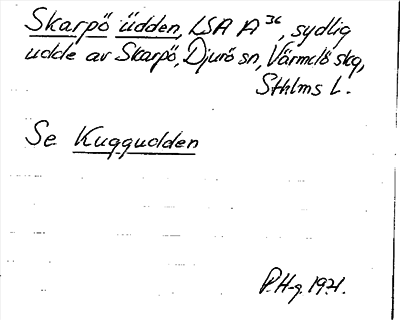 Skarpö üdden, LSA A 36, sydlig
udde av Skarpö, Djurö sn, Värmdö skg,
Sthlms L.
Se Kuggudden
P.H-g. 1921.